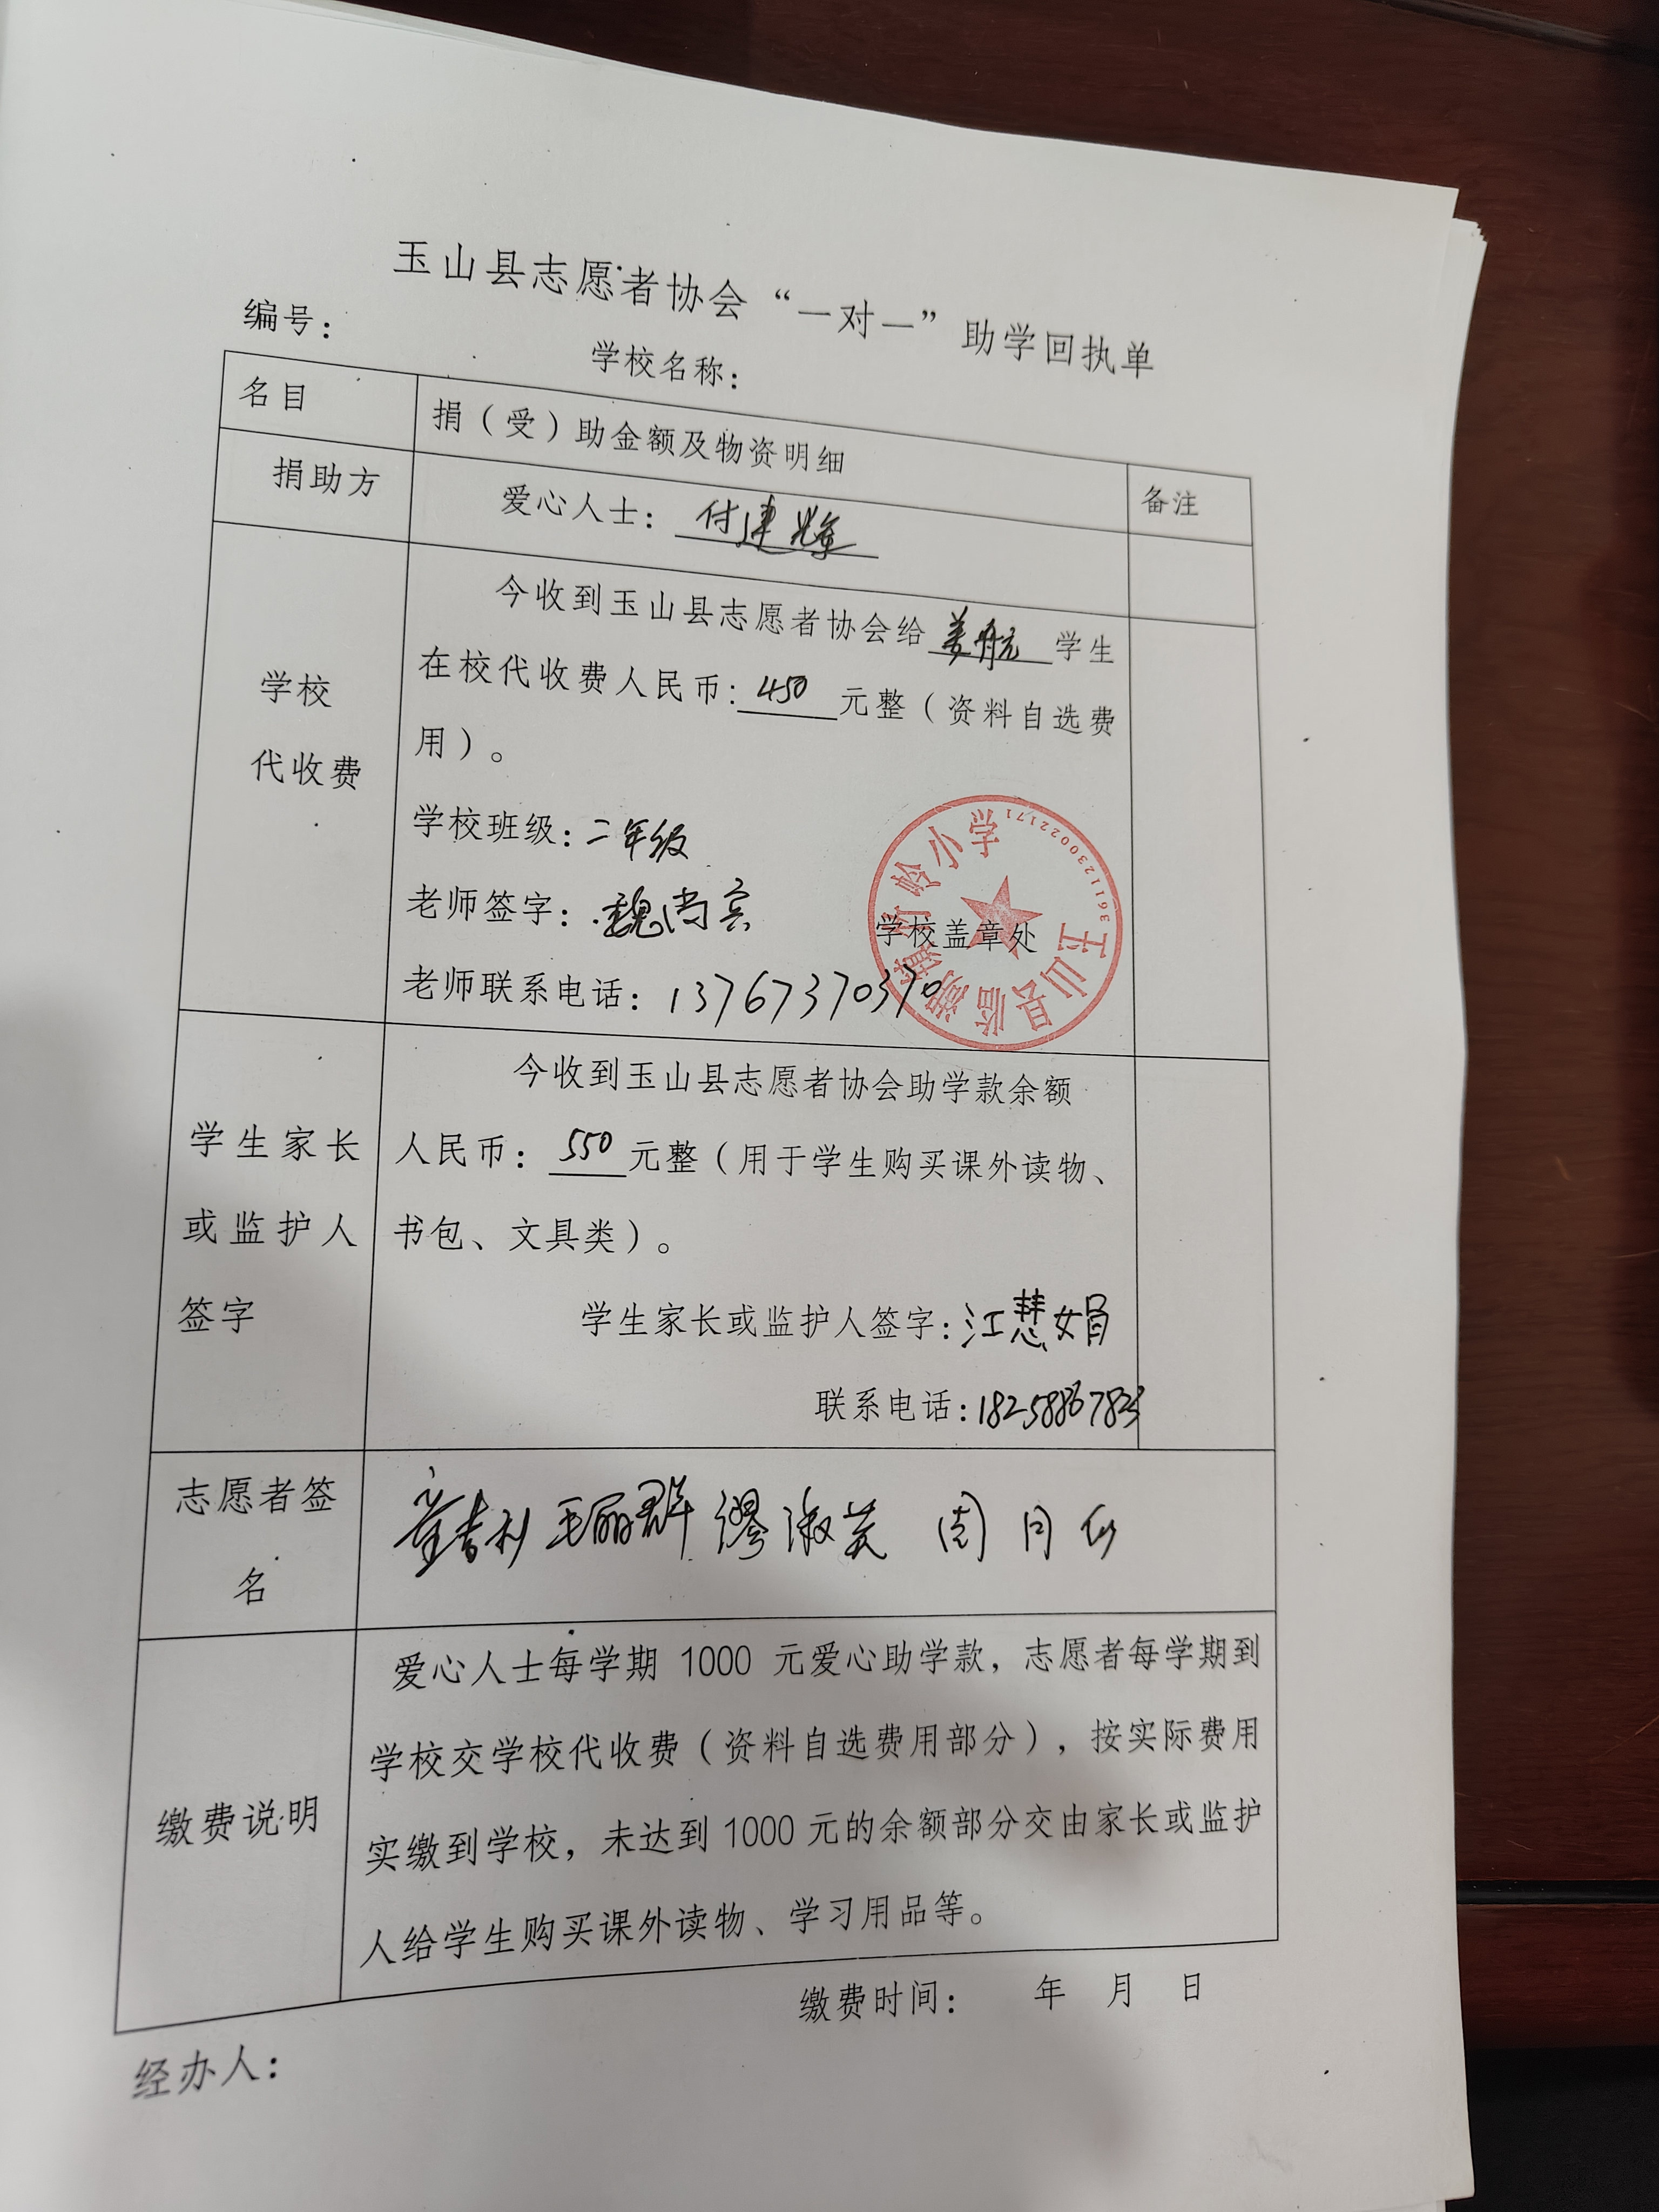 玉山县志愿者协会“一对一”助学回执单
编号：
学校名称：
名目
捐（受）助金额及物资明细
备注
捐助方
爱心人士：付建辉
学校
代收费
今收到玉山县志愿者协会给姜航学生
在校代收费人民币：450元整（资料自选费
用）。
学校班级：二年级
老师签字：魏尚宾
老师联系电话：13767370370
学校盖章处
玉山县临湖镇 岭小学
3611230022171
学生家长
或监护人
签字
今收到玉山县志愿者协会助学款余额
人民币：550元整（用于学生购买课外读物、
书包、文具类）。
学生家长或监护人签字：江慧娟
联系电话：
志愿者签
名
童吉利 毛丽群 缪淑英 周月仙
缴费说明
爱心人士每学期 1000 元爱心助学款，志愿者每学期到
学校交学校代收费（资料自选费用部分），按实际费用
实缴到学校，未达到1000元的余额部分交由家长或监护
人给学生购买课外读物、学习用品等。
缴费时间： 年 月 日
经办人：